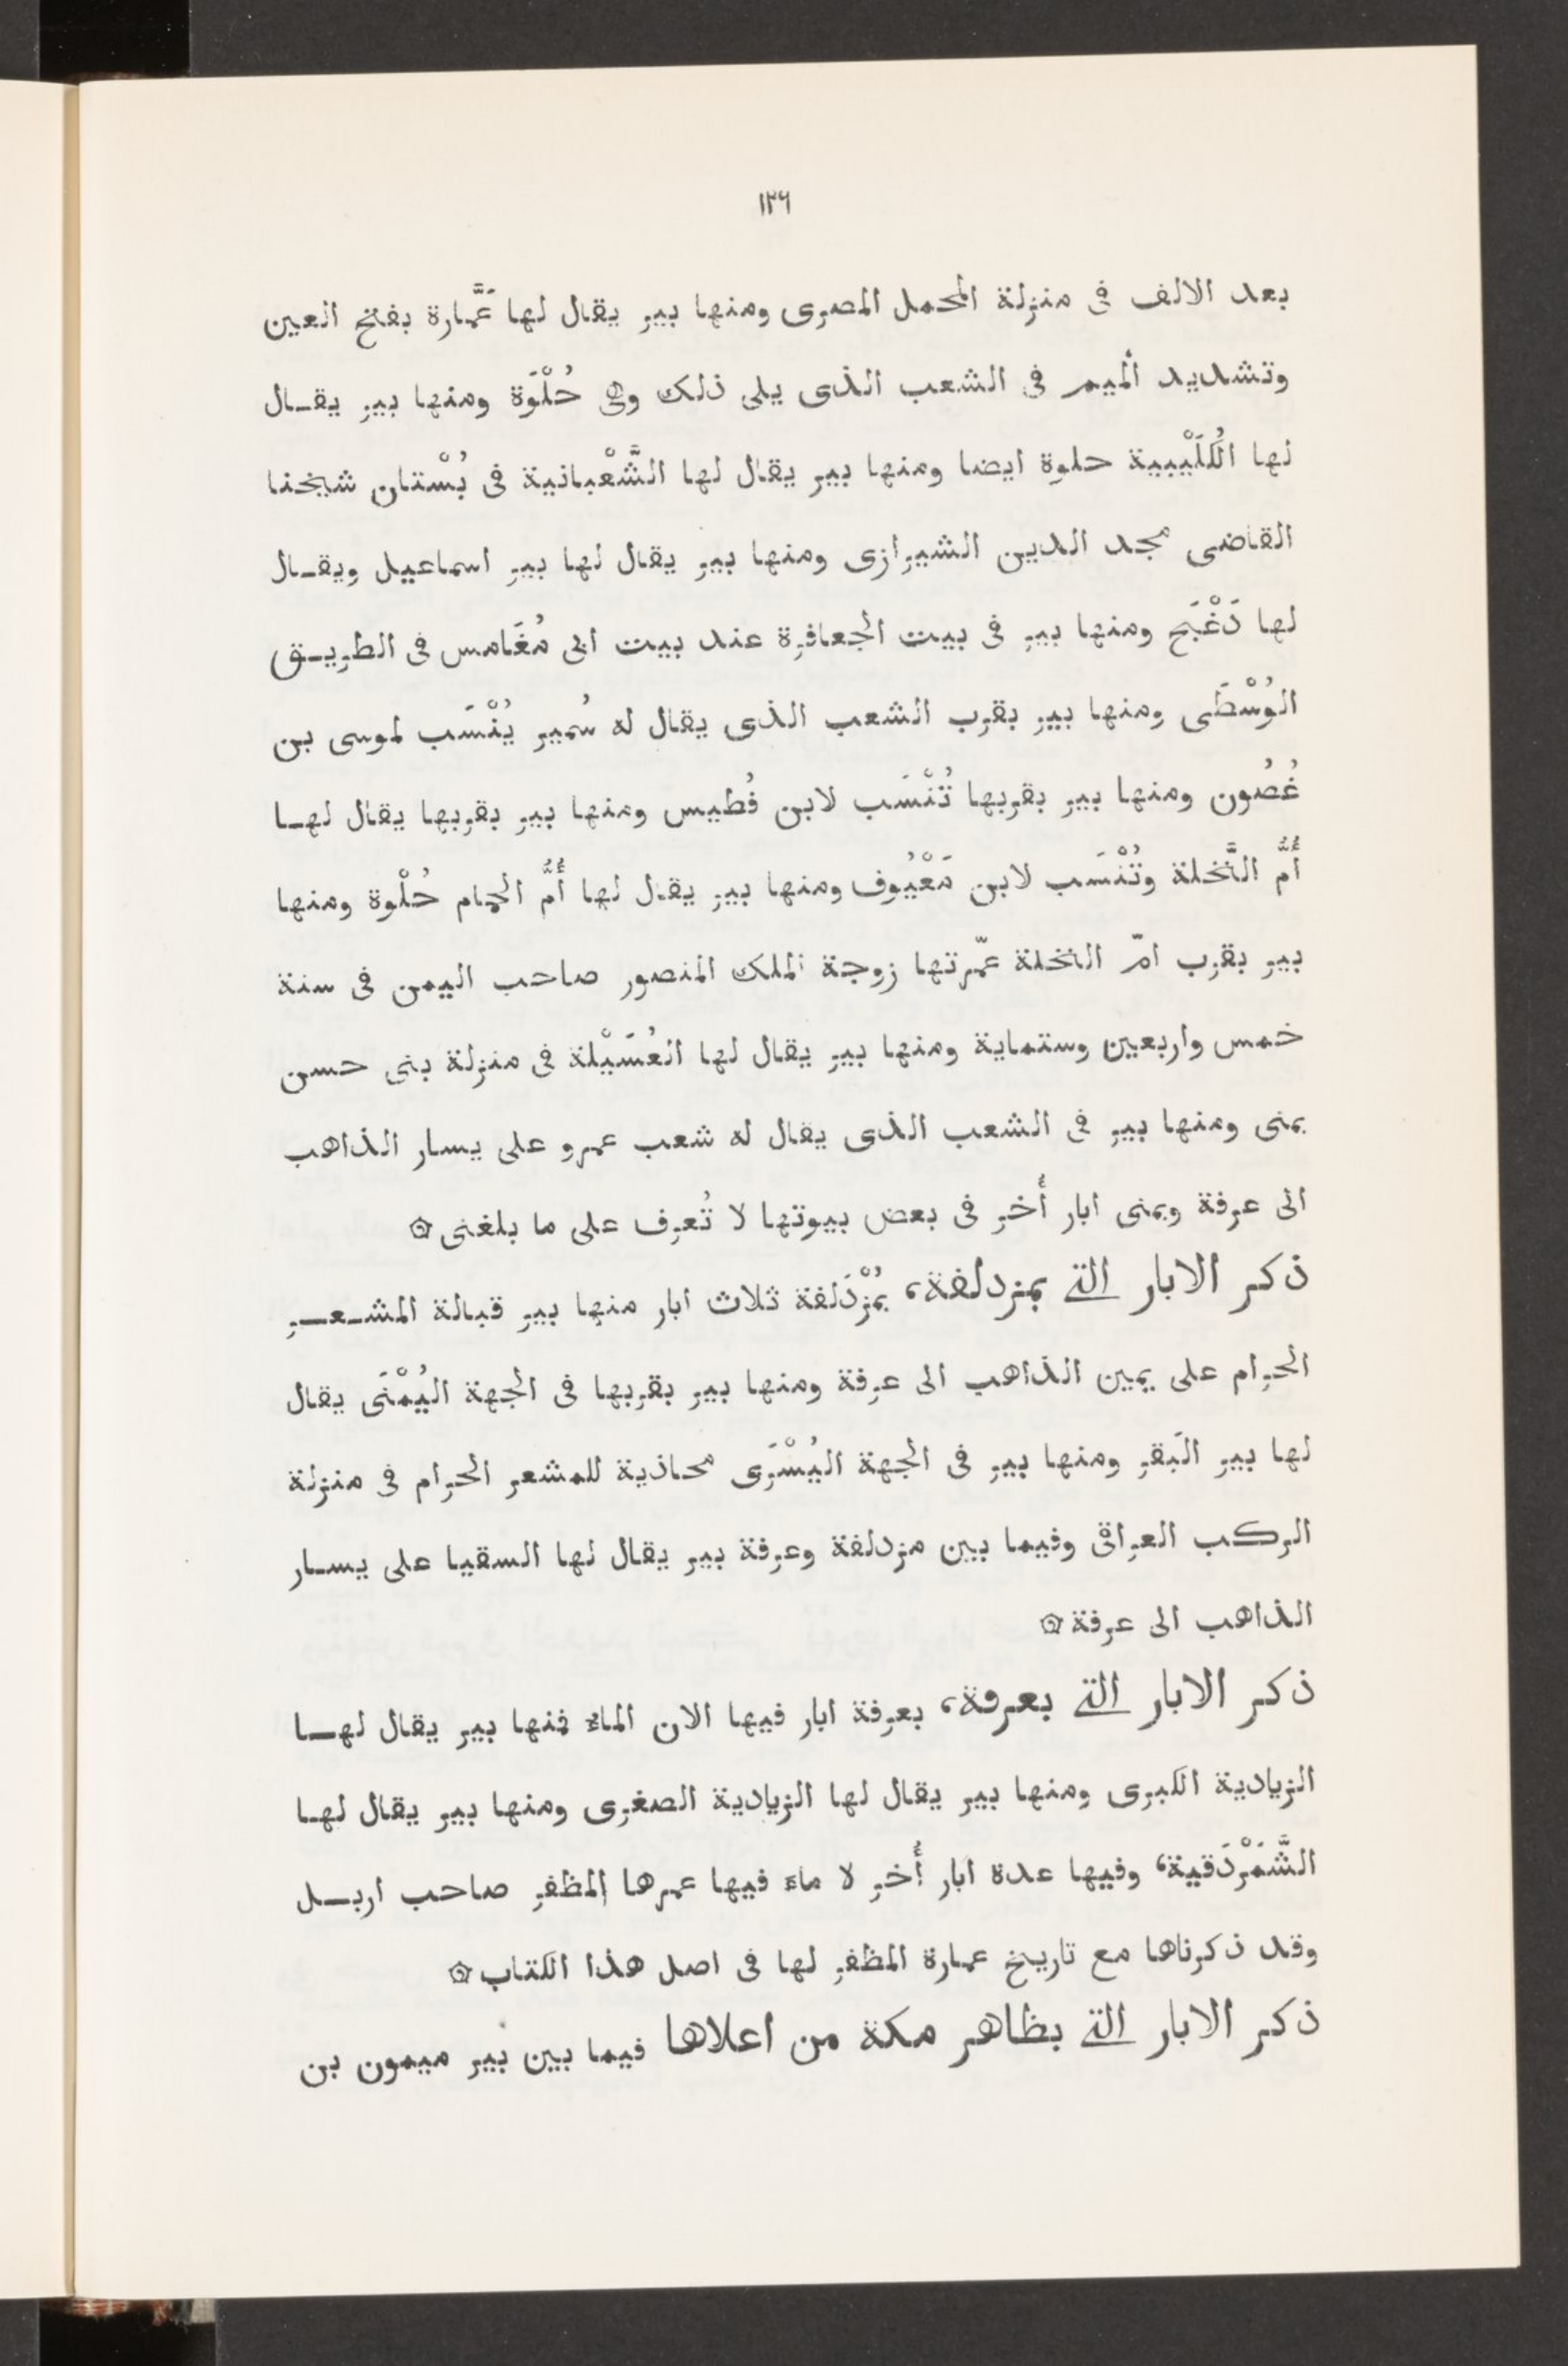 ١٢٦
بعد الالف فى منزلة المحمل المصرى ومنها بير يقال لها عَمَّارة بفتح العين
وتشديد الميم فى الشعب الذى يلى ذلك وهى حُلْوَة ومنها بير يقـال
لها الكُلَيْبِية حلوة ايضا ومنها بير يقال لها الشَّعْبانية فى بُسْتان شيخنا
القاضى مجد الدين الشيرازى ومنها بير يقال لها بير اسماعيل ويقـال
لها دَغْبَج ومنها بير فى بيت الجعافرة عند بيت ابى مُغَامس فى الطريـق
الوُسْطَى ومنها بير بقرب الشعب الذى يقال له سُمير يُنْسَب لموسى بن
غُصُون ومنها بير بقربها تُنْسَب لابن فُطيس ومنها بير بقربها يقال لهـا
أُمّ النَّخلة وتُنْسَب لابن مَعْيُوف ومنها بير يقال لها أُمّ الحمام حُلْوة ومنها
بير بقرب امّ النخلة عمّرتها زوجة الملك المنصور صاحب اليمن فى سنة
خمس واربعين وستماية ومنها بير يقال لها العُسَيْلة فى منزلة بنى حسن
بمنى ومنها بير فى الشعب الذى يقال له شعب عمرو على يسار الذاهب
الى عرفة وبمنى ابار أُخر فى بعض بيوتها لا تُعرف على ما بلغنى ۞
ذكر الابار التى بمزدلفة، بمُزْدَلفة ثلاث ابار منها بير قبالة المشـعـر
الحرام على يمين الذاهب الى عرفة ومنها بير بقربها فى الجهة اليُمْنَى يقال
لها بير البَقر ومنها بير فى الجهة اليُسْرَى محاذية للمشعر الحرام فى منزلة
الركب العراقى وفيما بين مزدلفة وعرفة بير يقال لها السقيا على يسـار
الذاهب الى عرفة ۞
ذكر الابار التى بعرفة، بعرفة ابار فيها الان الماء فمنها بير يقال لهـا
الزيادية الكبرى ومنها بير يقال لها الزيادية الصغرى ومنها بير يقال لهـا
الشَّمَرْدَقية، وفيها عدة ابار أُخر لا ماء فيها عمرها المظفر صاحب اربـل
وقد ذكرناها مع تاريخ عمارة المظفر لها فى اصل هذا الكتاب ۞
ذكر الابار التى بظاهر مكة من اعلاها فيما بين بير ميمون بن